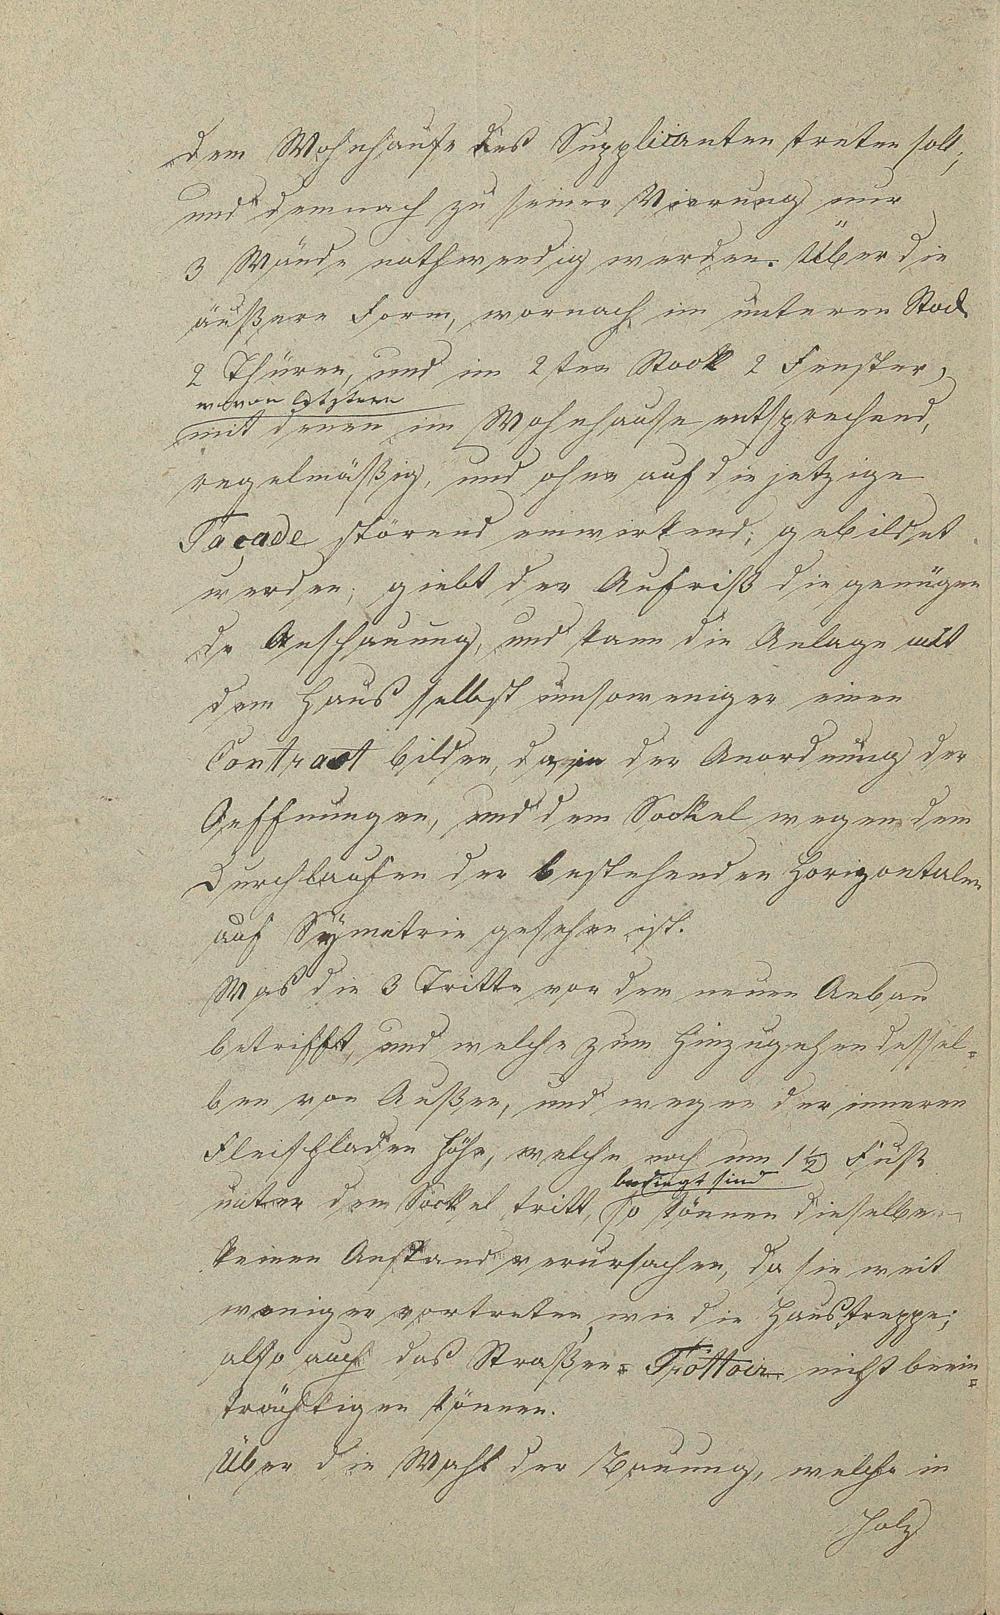 dem Wohnhause des Supplicanten treten soll,
und demnach zu seiner Vierung nur
3 Wände nothwendig werden. Über die
äußere Form, wornach im unteren Stock
2 Thüren, und im 2ten Stock 2 Fenster,
wovon letztere
mit denen im Wohnhause entsprechend,
regelmäßig, und ohne auf die jetzige
Façade störend einwirkend, gebildet
werden, giebt der Aufriß die genügen
de Anschauung, und kann die Anlage mit
dem Haus selbst umsoweniger einen
Contract bilden, da in der Anordnung der
Oeffnungen, und dem Sockel wegen dem
Durchlaufen der bestehenden Horizontalen
auf Symetrie gesehen ist.
Was die 3 Tritte vor dem neuen Anbau
betrifft, und welche zum Hinzugehen dessel-
ben von Außen, und wegen der inneren
Fleischladen Höhe, welche noch um 1½ Fuß
bedingt sind
unter dem Sockel tritt, so können dieselben
keinen Anstand verursachen, da sie weit
weniger vortreten, wie die Haustreppe;
also auch das Straßen-Trottoir nicht beein-
trächtigen können.
Über die Wahl der Bauung, welche in
Holz